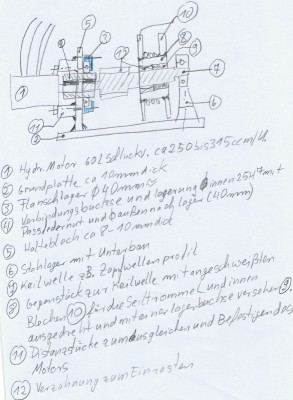 5
10
3
2
15
8
9
1
7
11
2
6
① Hydr. Motor 60l Schluckv. ca 250 bis 315 ccm/U.
② Grundplatte ca 10mm dick
③ Flanschlager ϕ 40mm
④ Verbindungsbuchse und lagerung ϕ innen 25H7 mit
Passfedernut und ϕ außen nach lager (40mm)
⑤ Halteblech ca 8-10mm dick
⑥ Stehlager mit Unterbau
⑦ Keilwelle z.B. Zapfwellenprofil
⑧ Gegenstück zur Keilwelle mit angeschweißten
Blechen ⑩ für die Seiltrommel und innen
ausgedreht und mit einer lagerbuchse versehen ⑨.
⑪ Distanzstücke zum ausgleichen und Befestigen des
Motors
⑫ Verzahnung zum Einrasten